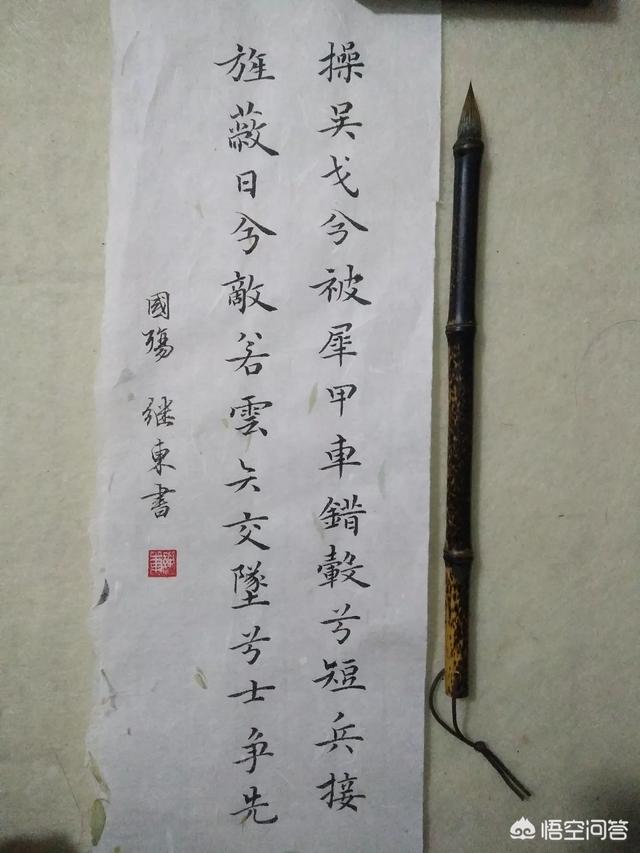 操吴戈兮被犀甲車錯轂兮短兵接
旌蔽日兮敵若雲矢交墜兮士争先
國殤 继東書
悟空问答